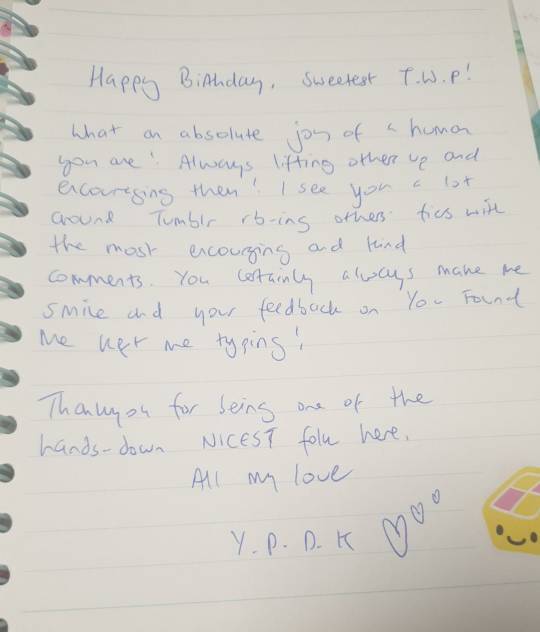 Happy Birthday, Sweetest T.W.P!
What an absolute joy of a human
you are! Always lifting others up and
encouraging them! I see you a lot
around Tumblr rb-ing others' fics with
the most encouraging and kind
comments. You certainly always make me
smile and your feedback on You Found
Me kept me typing!
Thankyou for being one of the
hands-down NICEST folk here.
All my love
Y.P.D.K